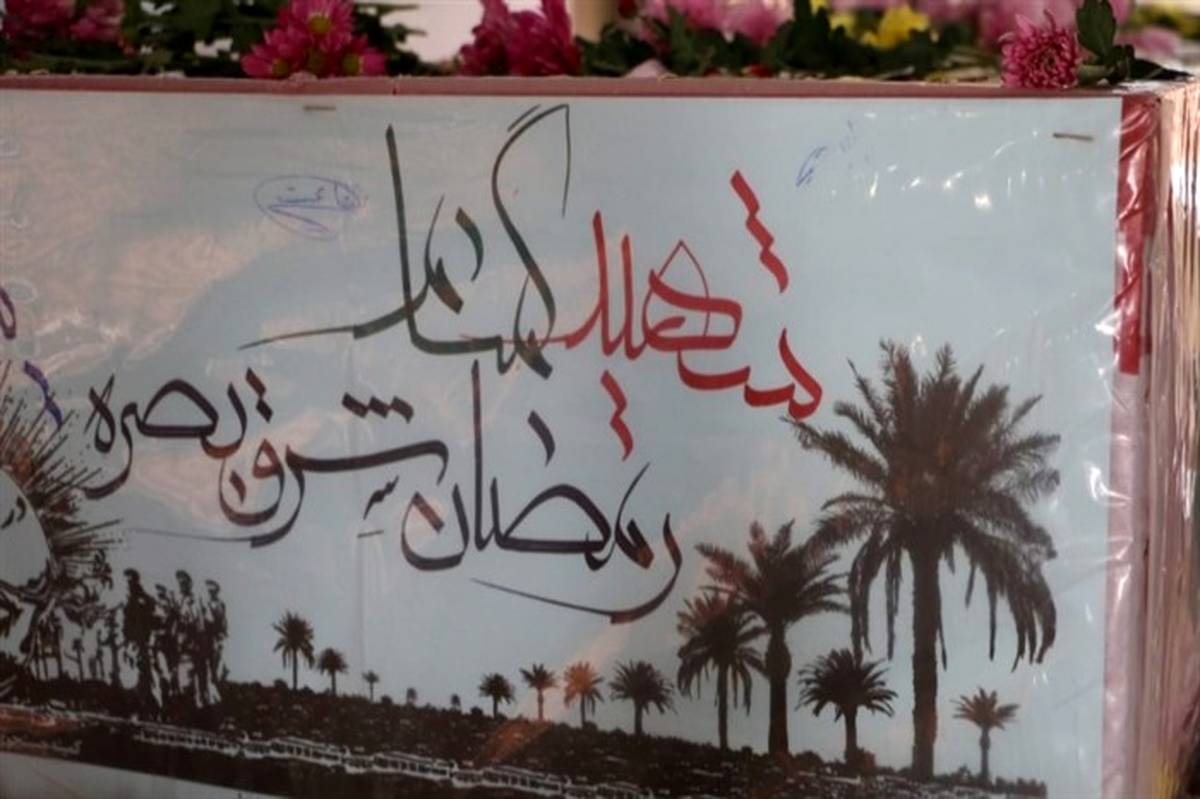 شهید گمنام
رمضان شرق بصره